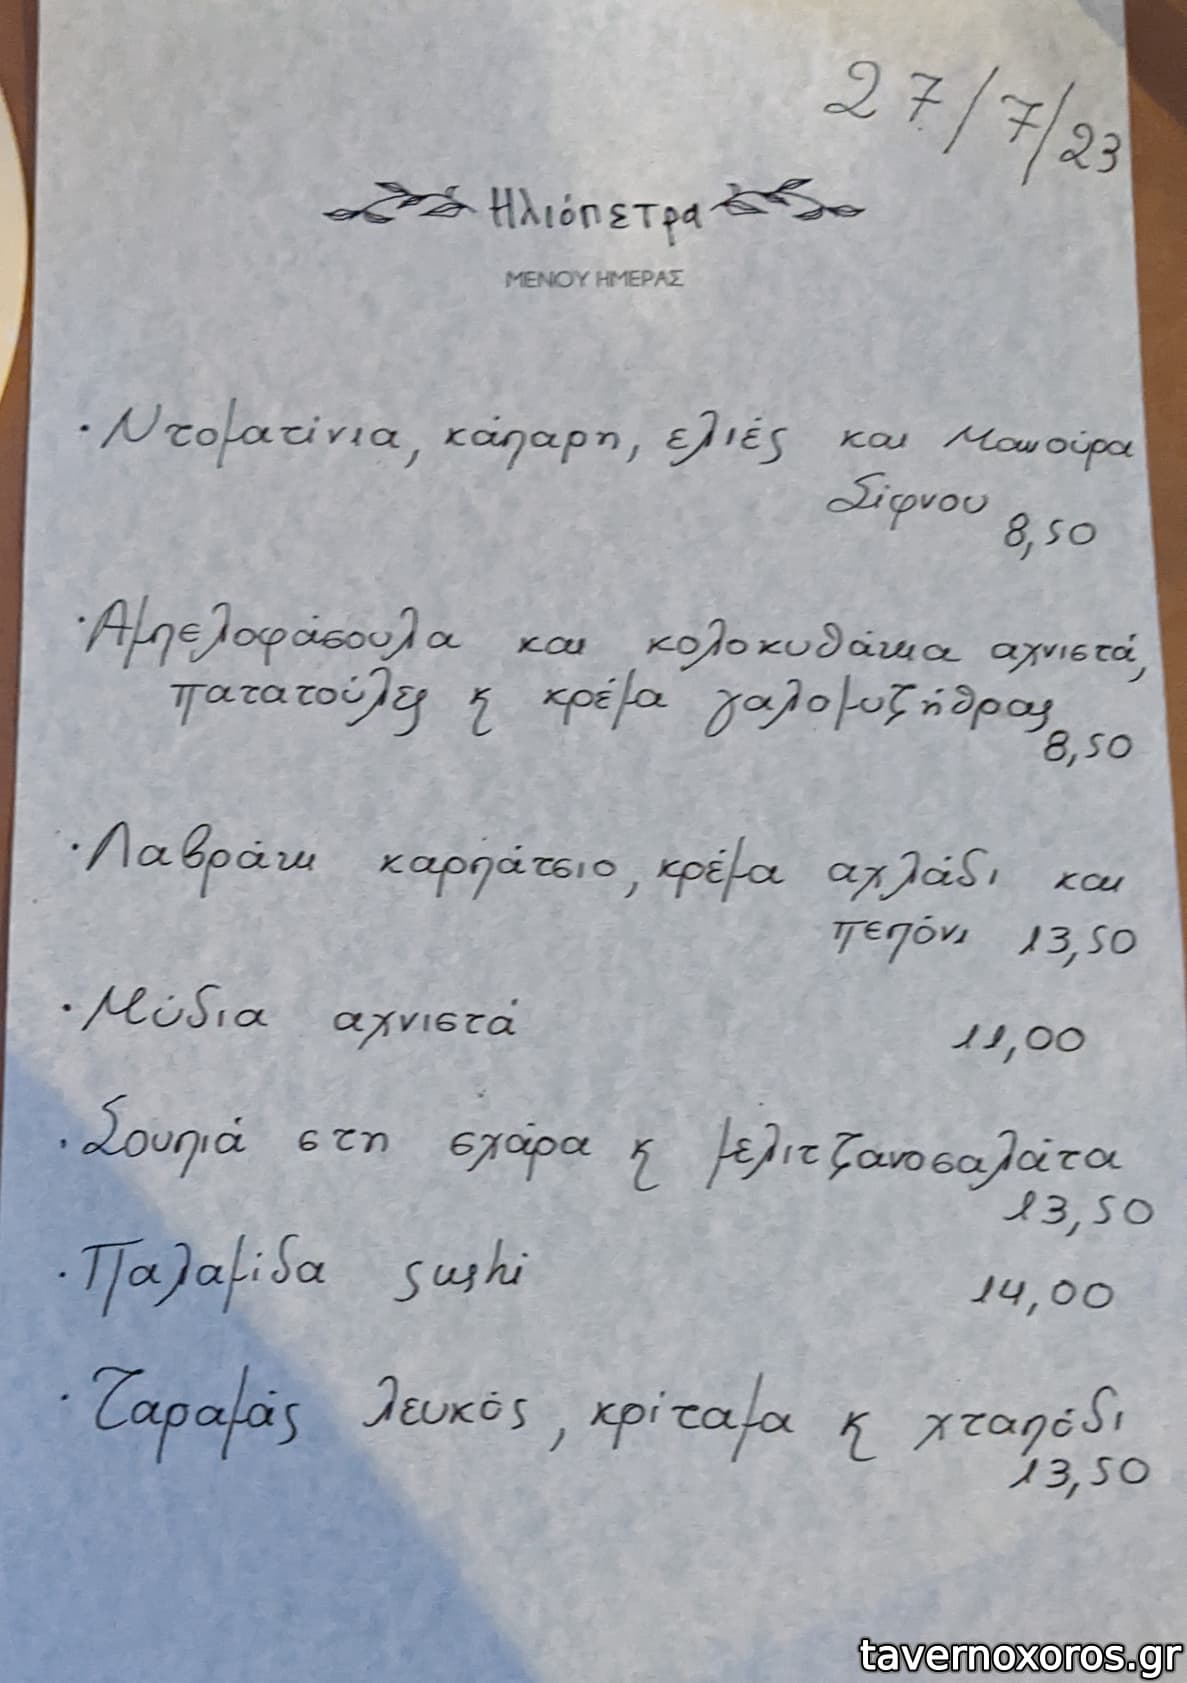 27/7/23
Ηλιόπετρα
ΜΕΝΟΥ ΗΜΕΡΑΣ
· Ντοματίνια, κάπαρη, ελιές και Μανούρα
Σίφνου
8,50
· Αμπελοφάσουλα και κολοκυθάκια αχνιστά,
πατατούλες ϗ κρέμα γαλομυζήθρας
8,50
· Λαβράκι καρπάτσιο, κρέμα αχλάδι και
πεπόνι 13,50
· Μύδια αχνιστά 11,00
· Σουπιά στη σχάρα ϗ μελιτζανοσαλάτα
13,50
· Παλαμίδα sushi 14,00
· Ταραμάς λευκός, κρίταμα ϗ χταπόδι
13,50
tavernoxoros.gr